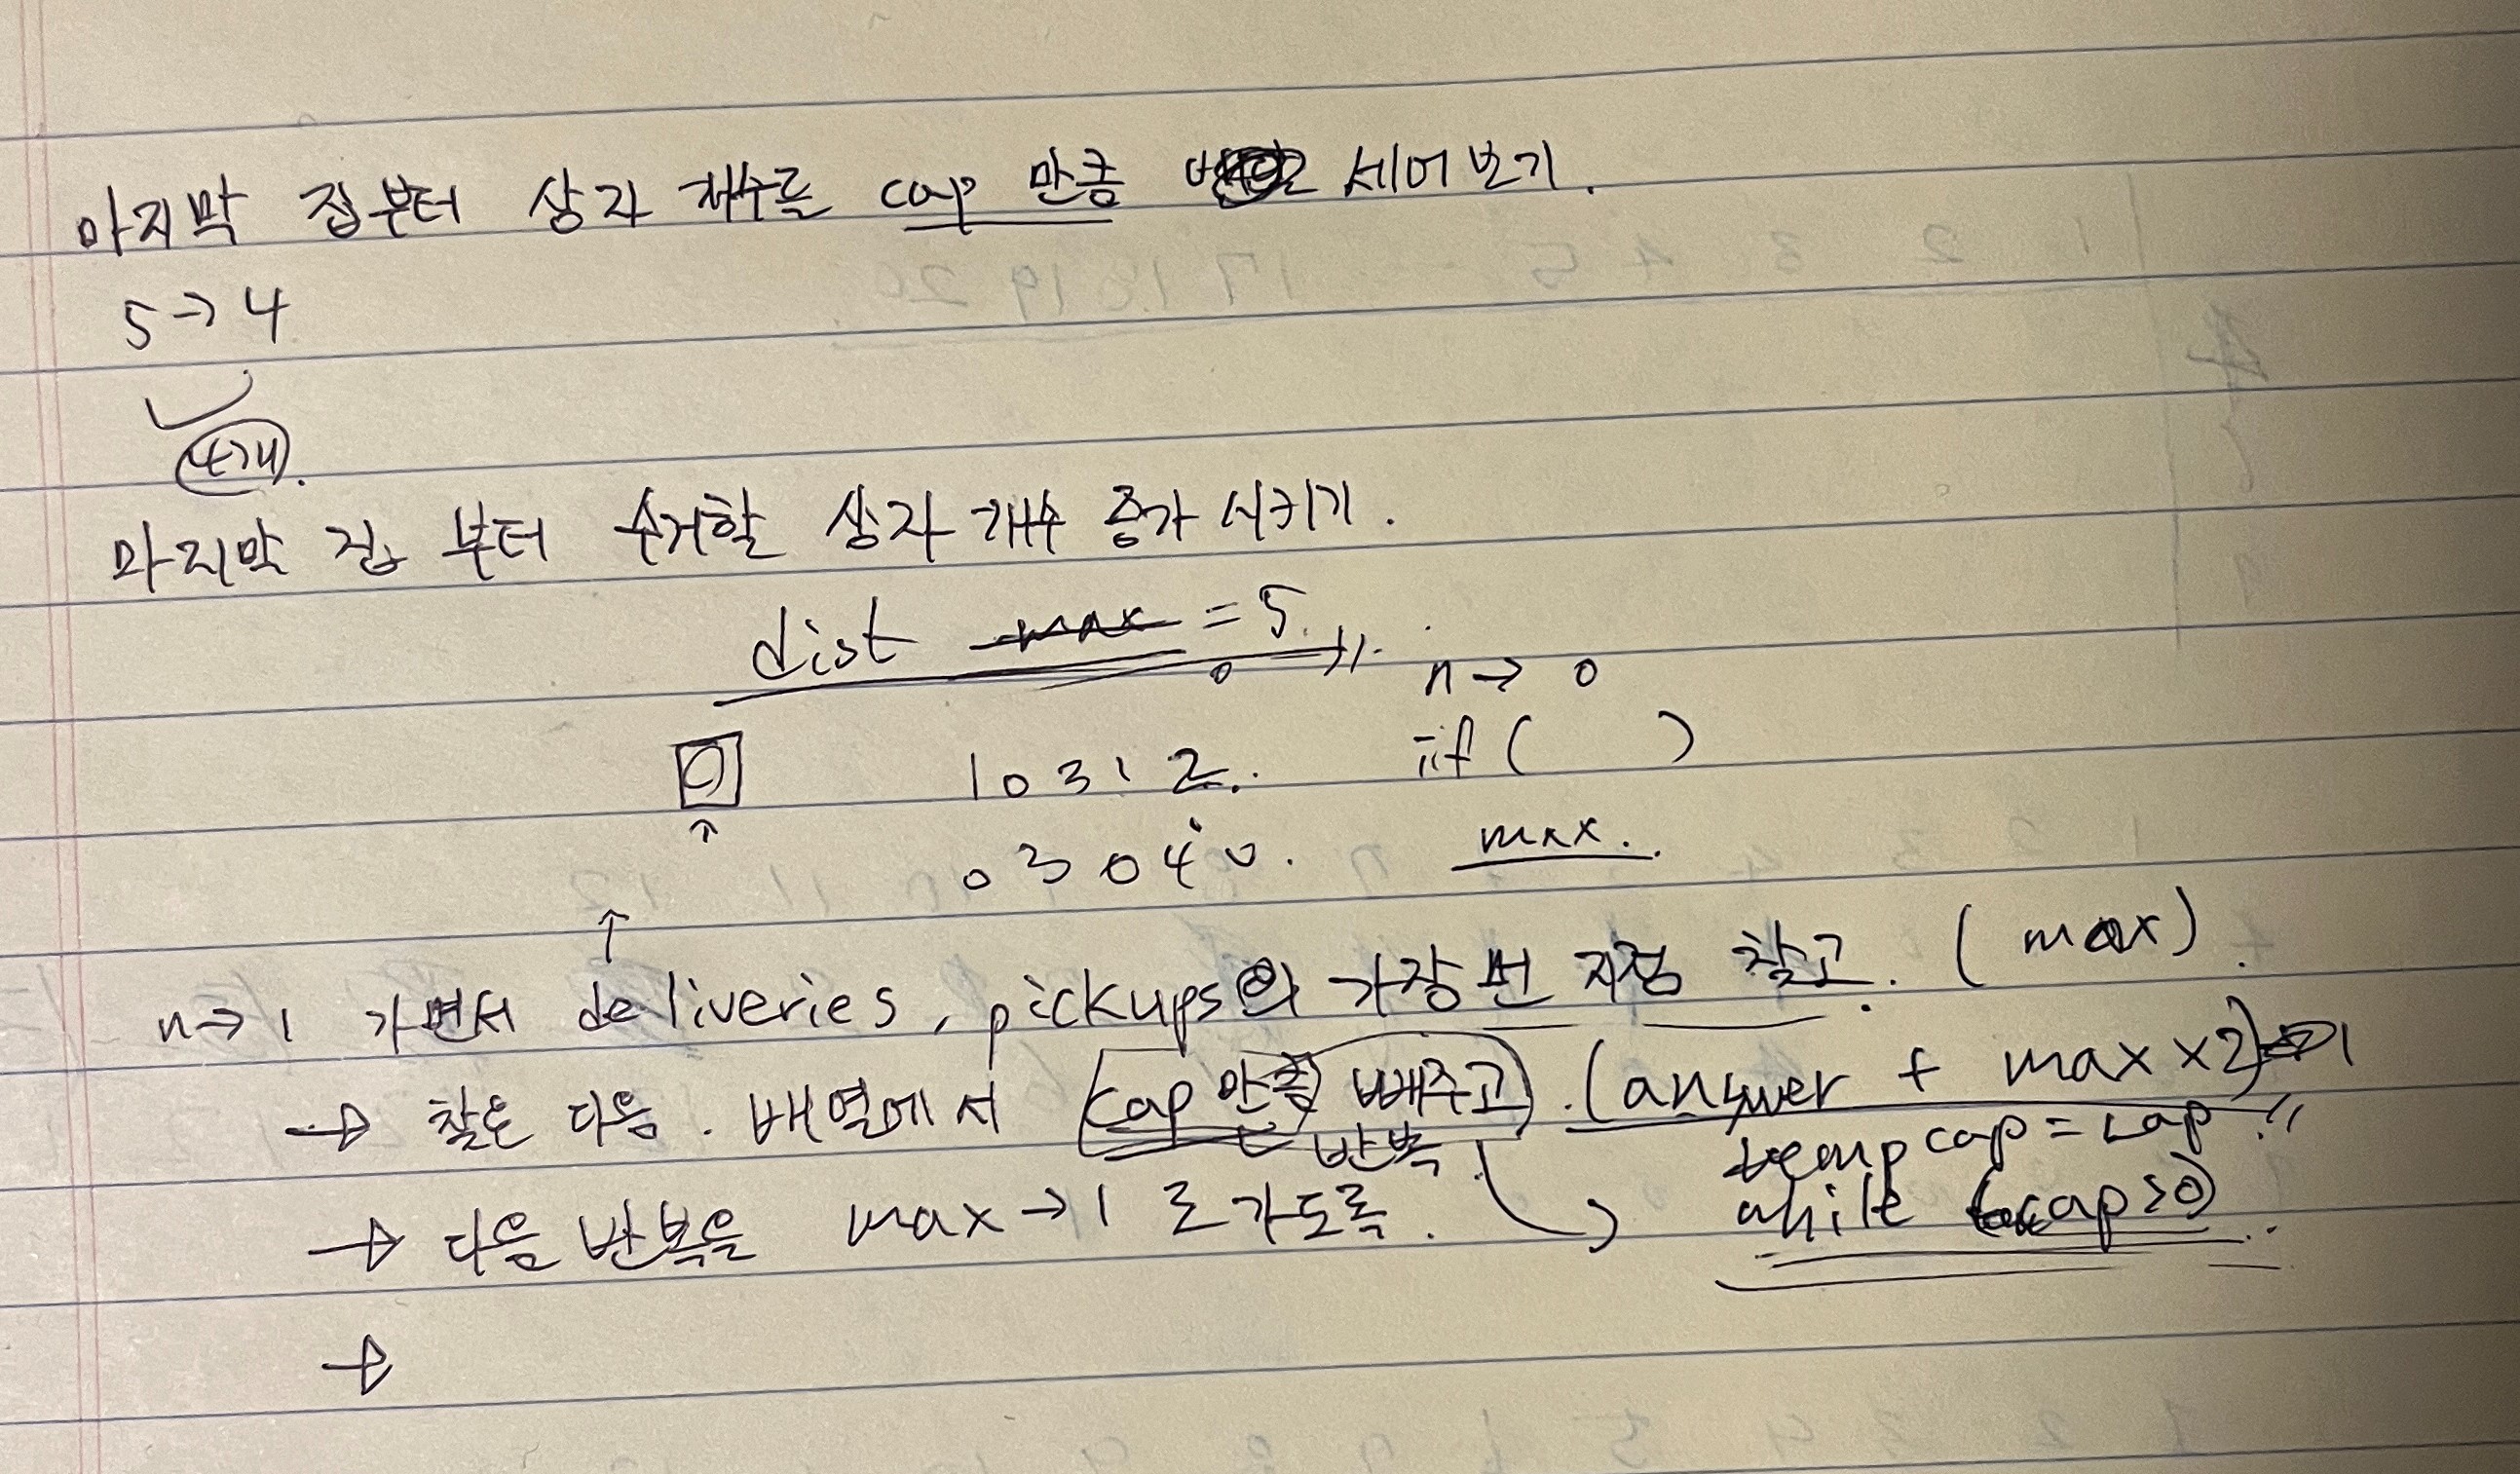 마지막 집부터 상자 개수를 cap 만큼 세어보기.
5 → 4
4개.
마지막 집 부터 수거할 상자 개수 증가 시키기.
dist max = 5
n → 0
1 0 3 1 2. if ( )
0 3 0 4 0. max.
n → 1 가면서 deliveries, pickups의 가장 먼 지점 찾고. (max).
→ 찾은 다음. 배열에서 (cap 만큼 빼주고). (answer + max x 2)
반복 temp cap = cap
→ 다음 반복은 max → 1 로 가도록. while (cap>0)
→